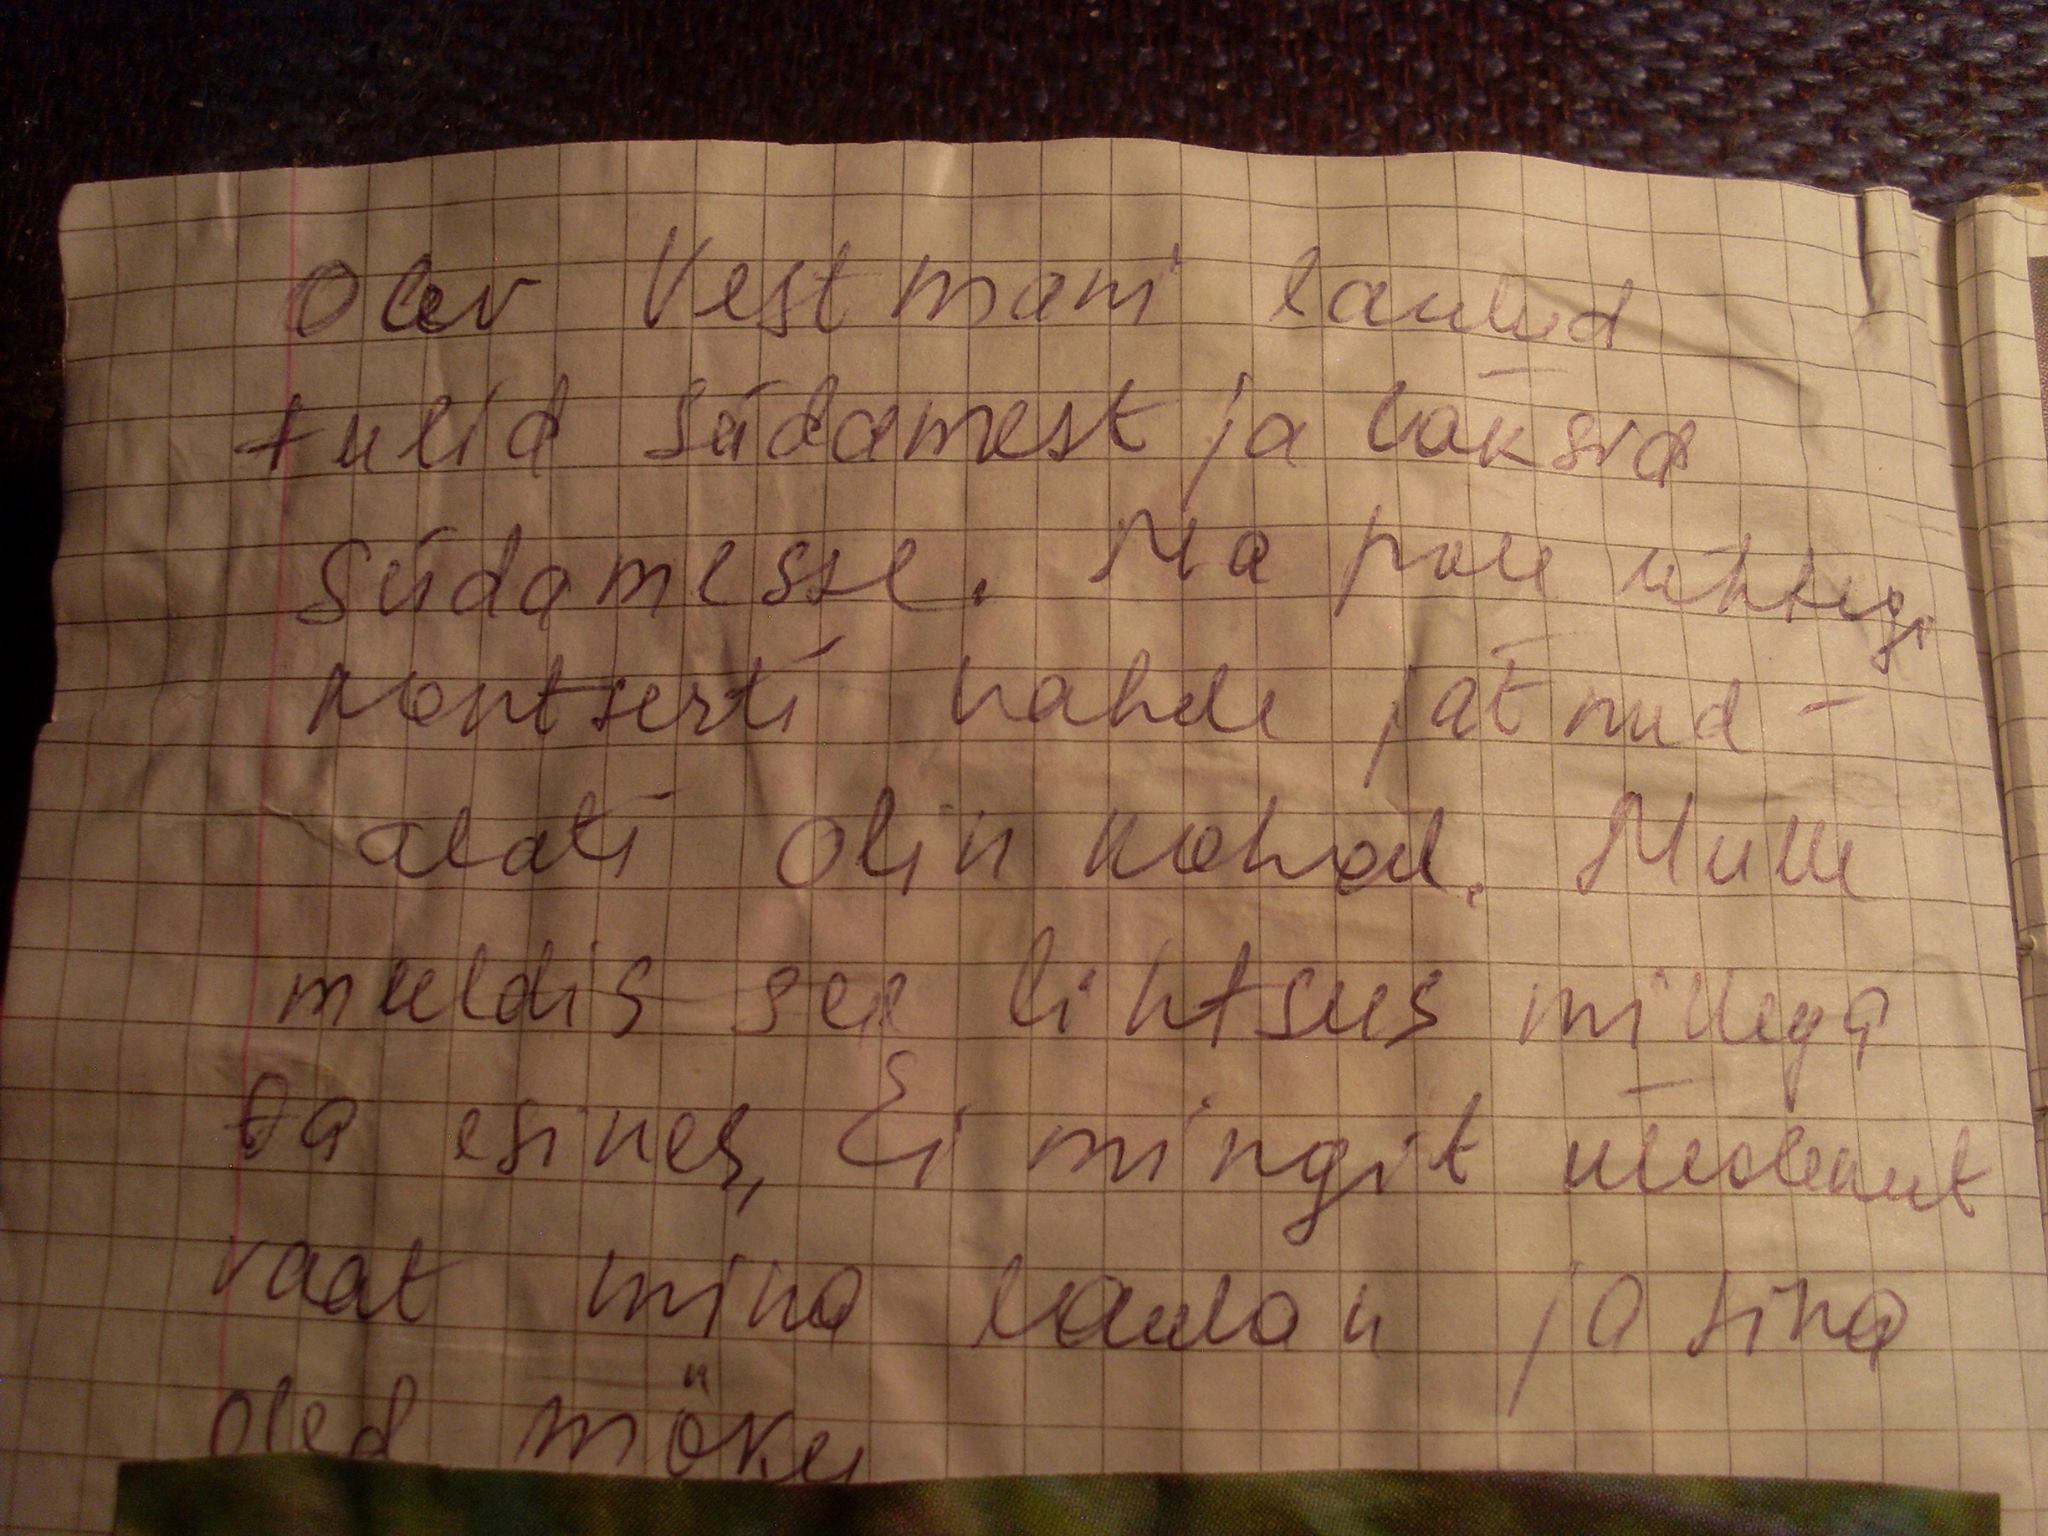 Olev Vestmani laulud
tulid südamest ja läksid
südamesse. Ma pole ühtegi
kontserti vahele jätnud -
alati olin kohal. Mulle
muldis see lihtsus millega
ta esines, Ei mingit üleolevut
vaat mina laulan ja sina
oled möku